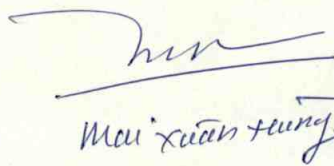 Mai Xuân Hùng